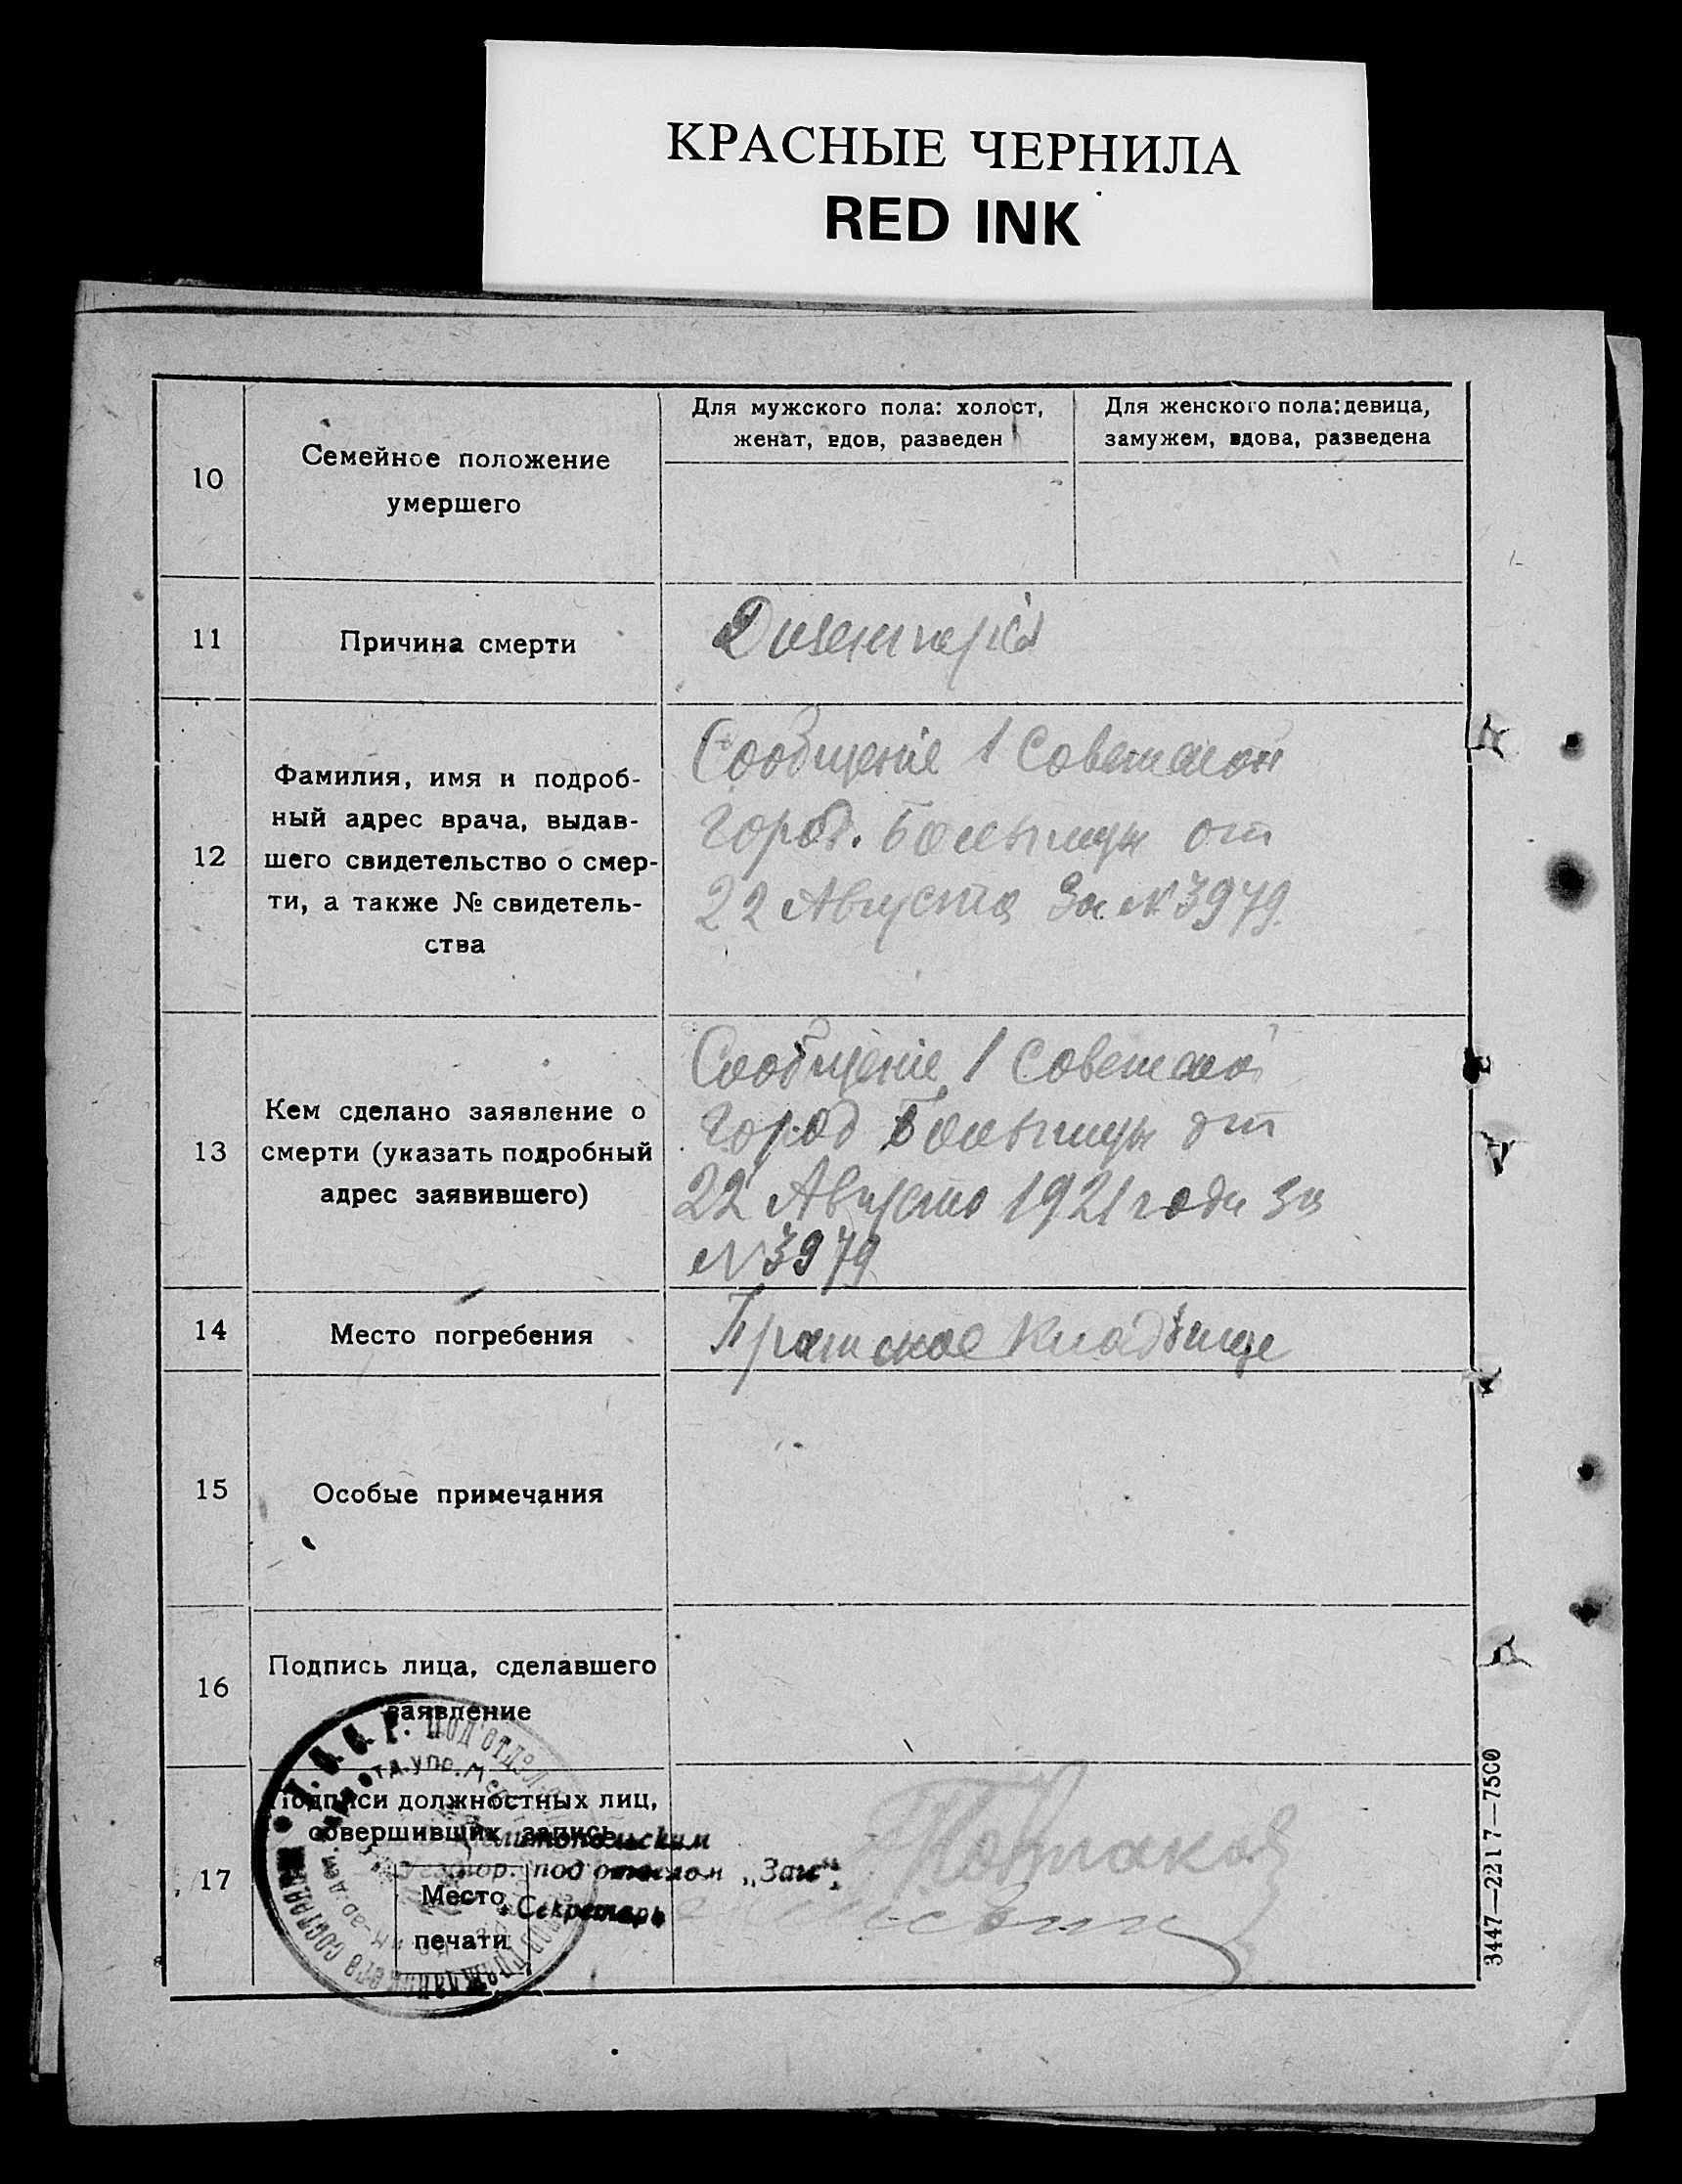 КРАСНЫЕ ЧЕРНИЛА
RED INK
10
Семейное положение
умершего
Для мужского пола: холост,
женат, вдов, разведен
Для женского пола: девица,
замужем, вдова, разведена
11
Причина смерти
Дизентерія
12
Фамилия, имя и подроб-
ный адрес врача, выдав-
шего свидетельство о смер-
ти, а также № свидетель-
ства
Сообщеніе 1 Советской
город. Больницы от
22 Августа За № 3979.
13
Кем сделано заявление о
смерти (указать подробный
адрес заявившего)
Сообщеніе 1 Советской
город Больницы от
22 Августа 1921 года за
№ 3979
14
Место погребения
Братское кладбище
15
Особые примечания
16
Подпись лица, сделавшего
заявление
17
Подписи должностных лиц,
совершивших запись
под отделом „Заг“
Место
Секретарь
печати
3447—2217—7500